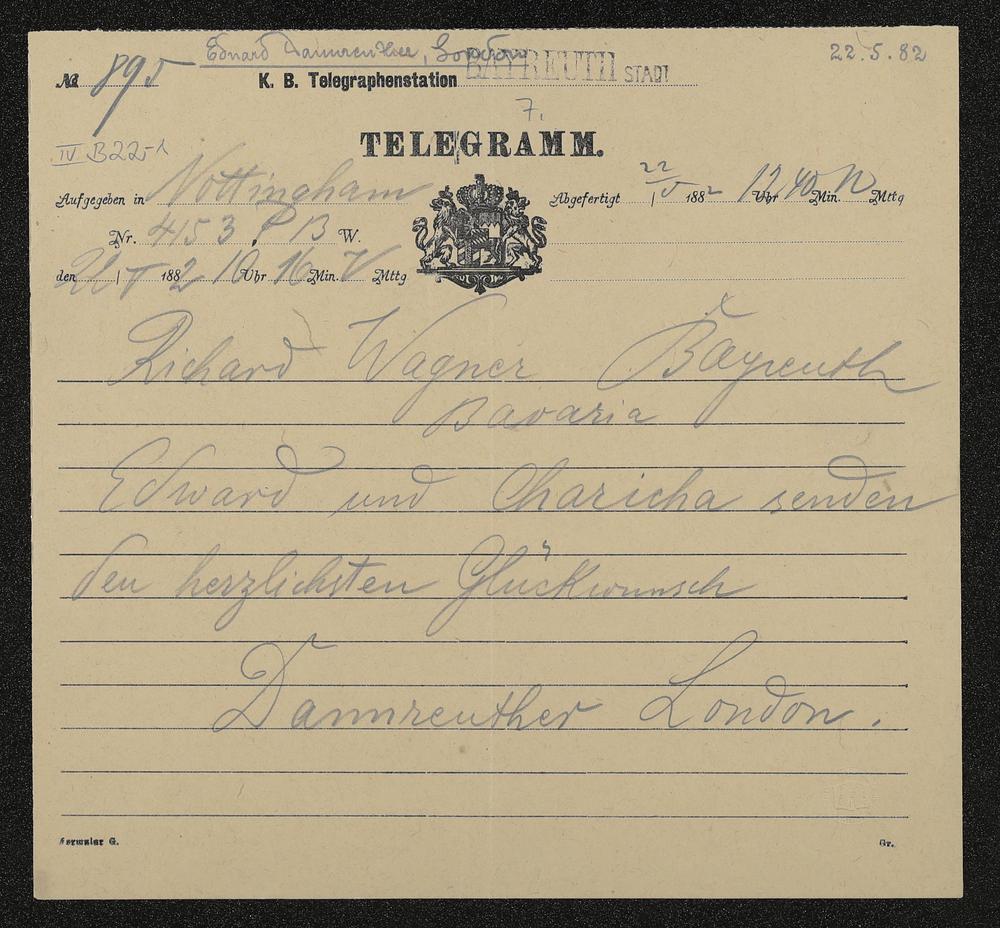 Eduard Dannreuther, London
22.5.82
№ 895 K. B. Telegraphenstation BAYREUTH STADT
7.
TELEGRAMM.
IV B22-1
Aufgegeben in Nottingham
Abgefertigt 22/5 1882 12 Uhr 40 Min. N Mttg
Nr. 4153. P B W.
den 22/5 1882 10 Uhr 16 Min. V Mttg
Richard Wagner Bayreuth
Bavaria
Edward und Charicha senden
den herzlichsten Glückwunsch
Dannreuther London.
Formular G.
Gr.